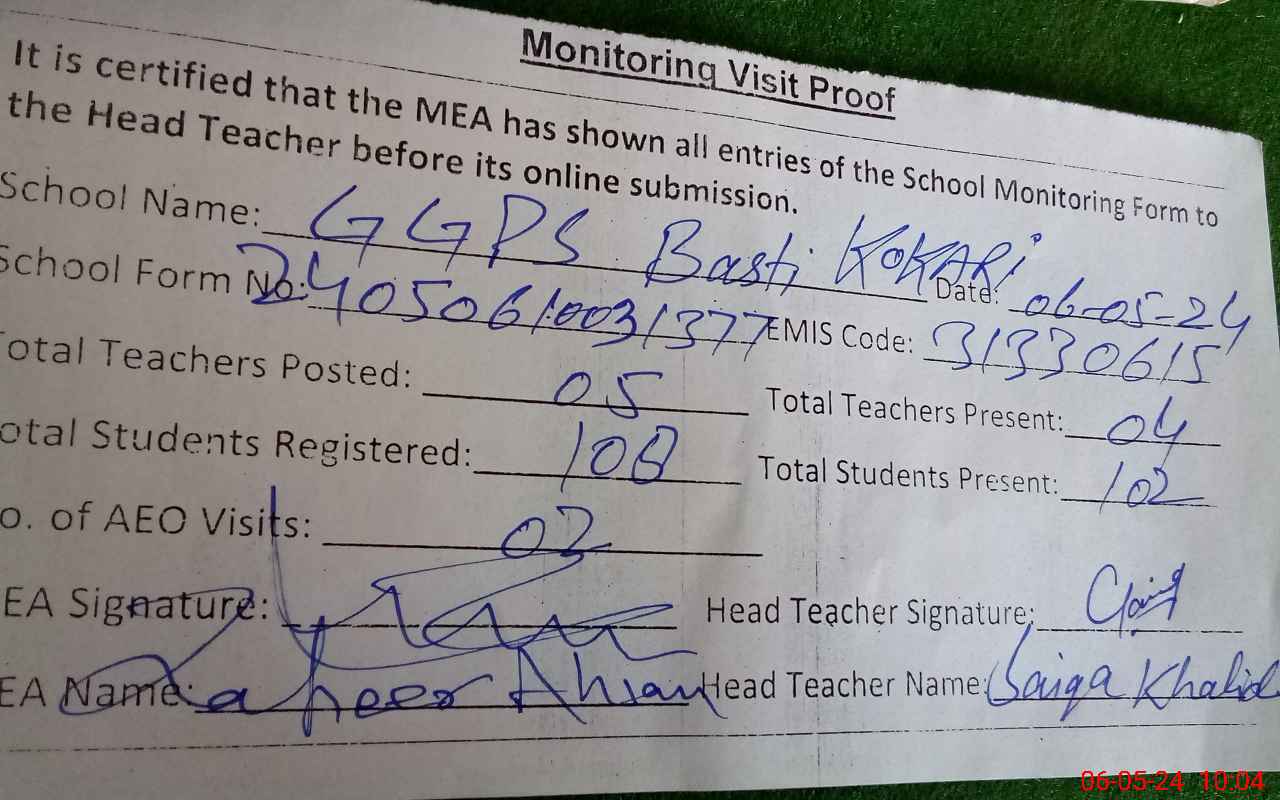 Monitoring Visit Proof
It is certified that the MEA has shown all entries of the School Monitoring Form to
the Head Teacher before its online submission.
School Name: GGPS Basti KOKARI
Date: 06-05-24
School Form No: 24050610031377 EMIS Code: 31330615
otal Teachers Posted: 05 Total Teachers Present: 04
otal Students Registered: 108 Total Students Present: 102
o. of AEO Visits: 02
EA Signature: Head Teacher Signature:
EA Name: Ahsan Head Teacher Name: Saiqa Khalid
06-05-24 10:04